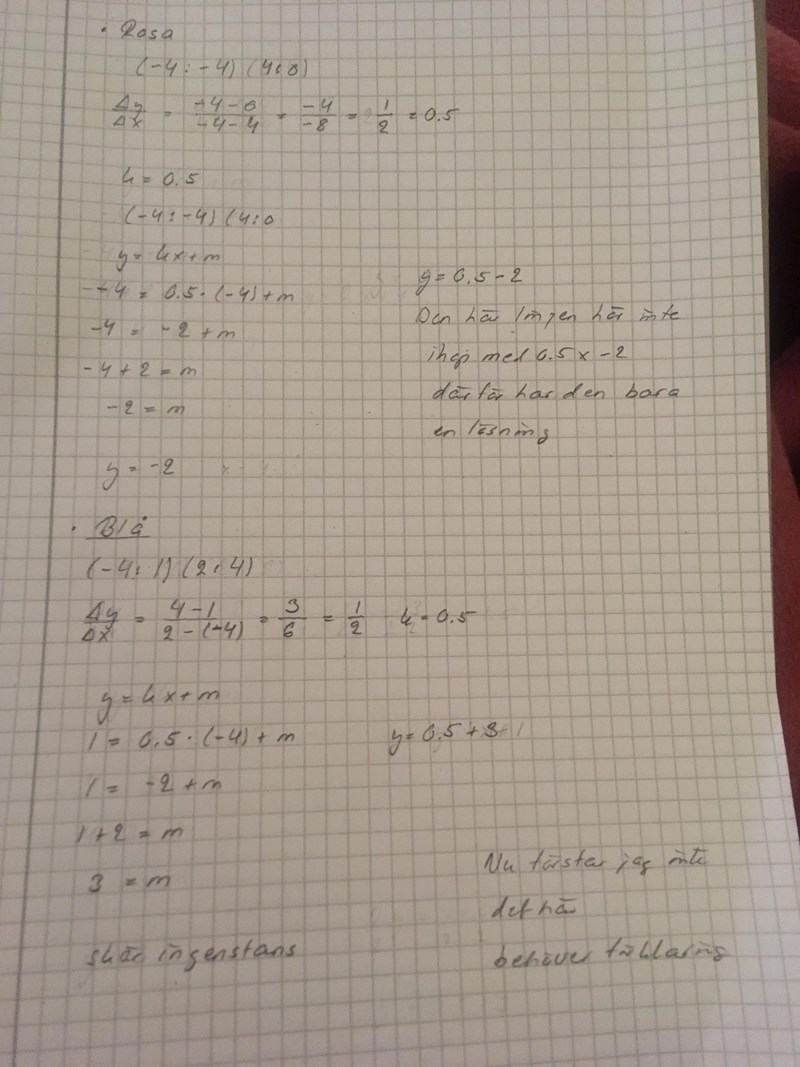 • Rosa
(-4 : -4) (4 : 0)
Δy/Δx = -4-0/-4-4 = -4/-8 = 1/2 = 0.5
k = 0.5
(-4 : -4) (4 : 0
y = kx+m
-4 = 0.5 · (-4) + m
-4 = -2 + m
-4 + 2 = m
-2 = m
y = -2
y = 0.5 - 2
Den här linjen här inte
ihop med 0.5x - 2
därför har den bara
en lösning
• Blå
(-4 : 1) (2 : 4)
Δy/Δx = 4-1/2-(-4) = 3/6 = 1/2 k = 0.5
y = kx+m
1 = 0.5 · (-4) + m
y = 0.5 + 3
1 = -2 + m
1+2 = m
3 = m
skär ingenstans
Nu förstår jag inte
det här
behöver förklaring